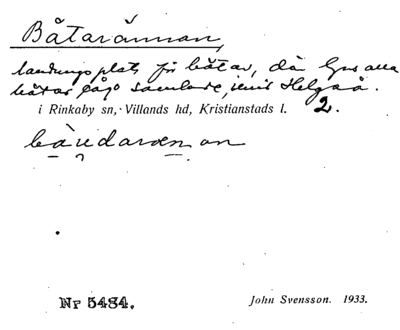 Båtarännan,
landningsplats för båtar, där ljus alla
båtar låg samlade, invid Helgeå.
i Rinkaby sn, Villands hd, Kristianstads l. 2.
båudarœnan
Nr 5484.
John Svensson. 1933.